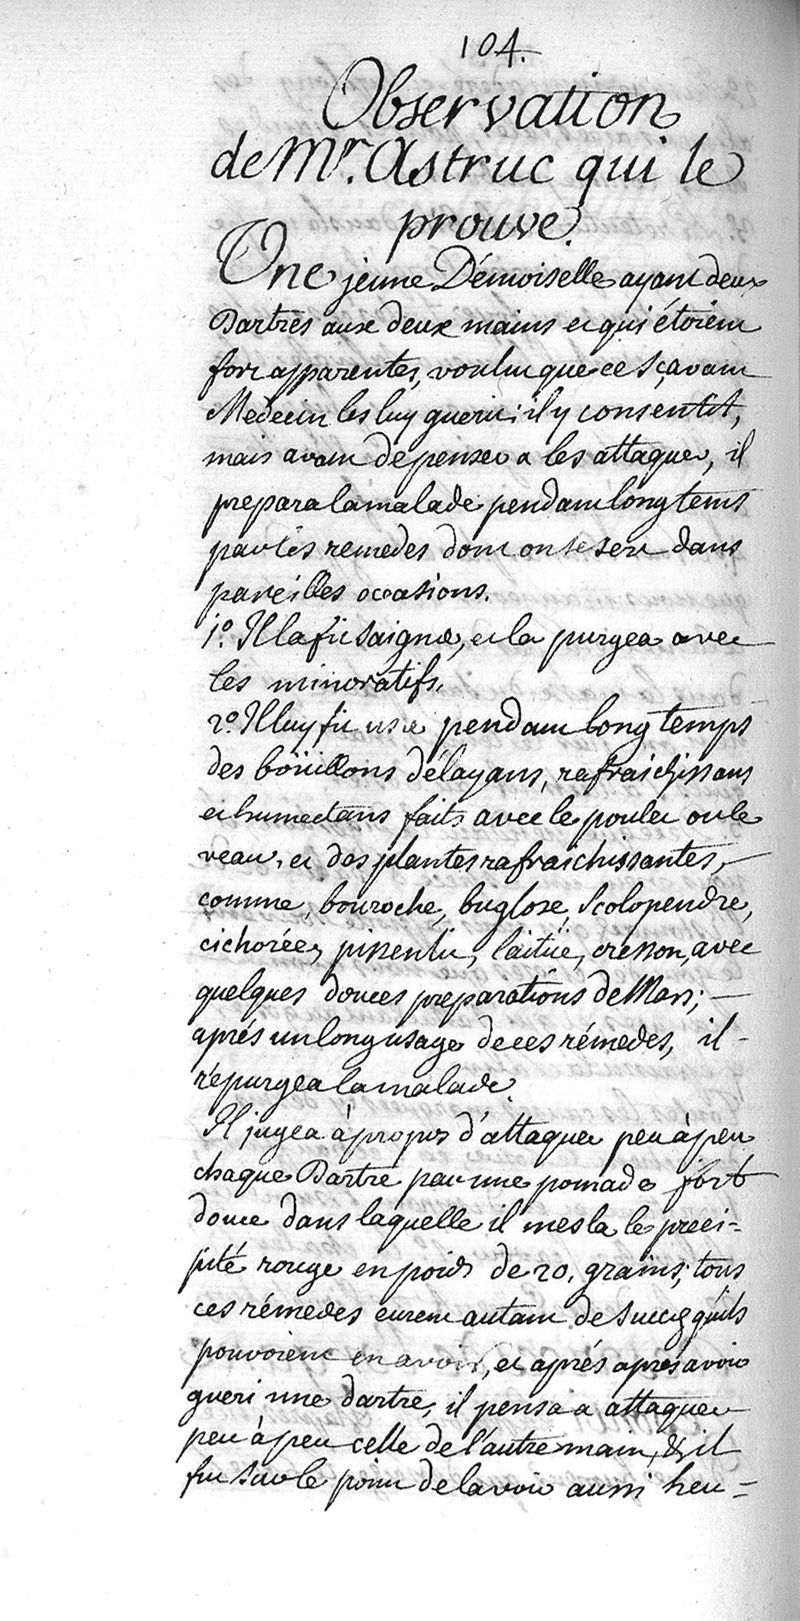 104.
Observation
de Mr. Astruc qui le
prouve.
Une jeune Démoiselle ayant deux
Dartres aux deux mains et qui étoient
fort apparentes, voulut que ce Sçavant
Medecin les luy guerit; il y consentit,
mais avant de penser a les attaquer, il
prepara la malade pendant long tems
par les remedes dont on se sert dans
pareilles occasions.
1º. Il la fit saigner, et la purgea avec
les minoratifs.
2º. Il luy fit user pendant long temps
des boüillons délayans, rafraichissans
et humectans faits avec le poulet ou le
veau, et des plantes rafraichissantes,
comme, bouroche, buglose, Scolopendre,
cichorée, pissenlit, laitüe, cresson, avec
quelques douces preparations de Mars;
aprés un long usage de ces rémedes, il
répurgea la malade.
Il jugea à propos d'attaquer peu à peu
chaque Dartre par une pomade fort
douce dans laquelle il mesla le preci-
pité rouge en poids de 20. grains; tous
ces rémedes eurent autant de succez qu'ils
pouvoient en avoir, et aprés aprés avoir
gueri une dartre, il pensa a attaquer
peu à peu celle de l'autre main, & il
fut sur le point de l'avoir aussi heu=